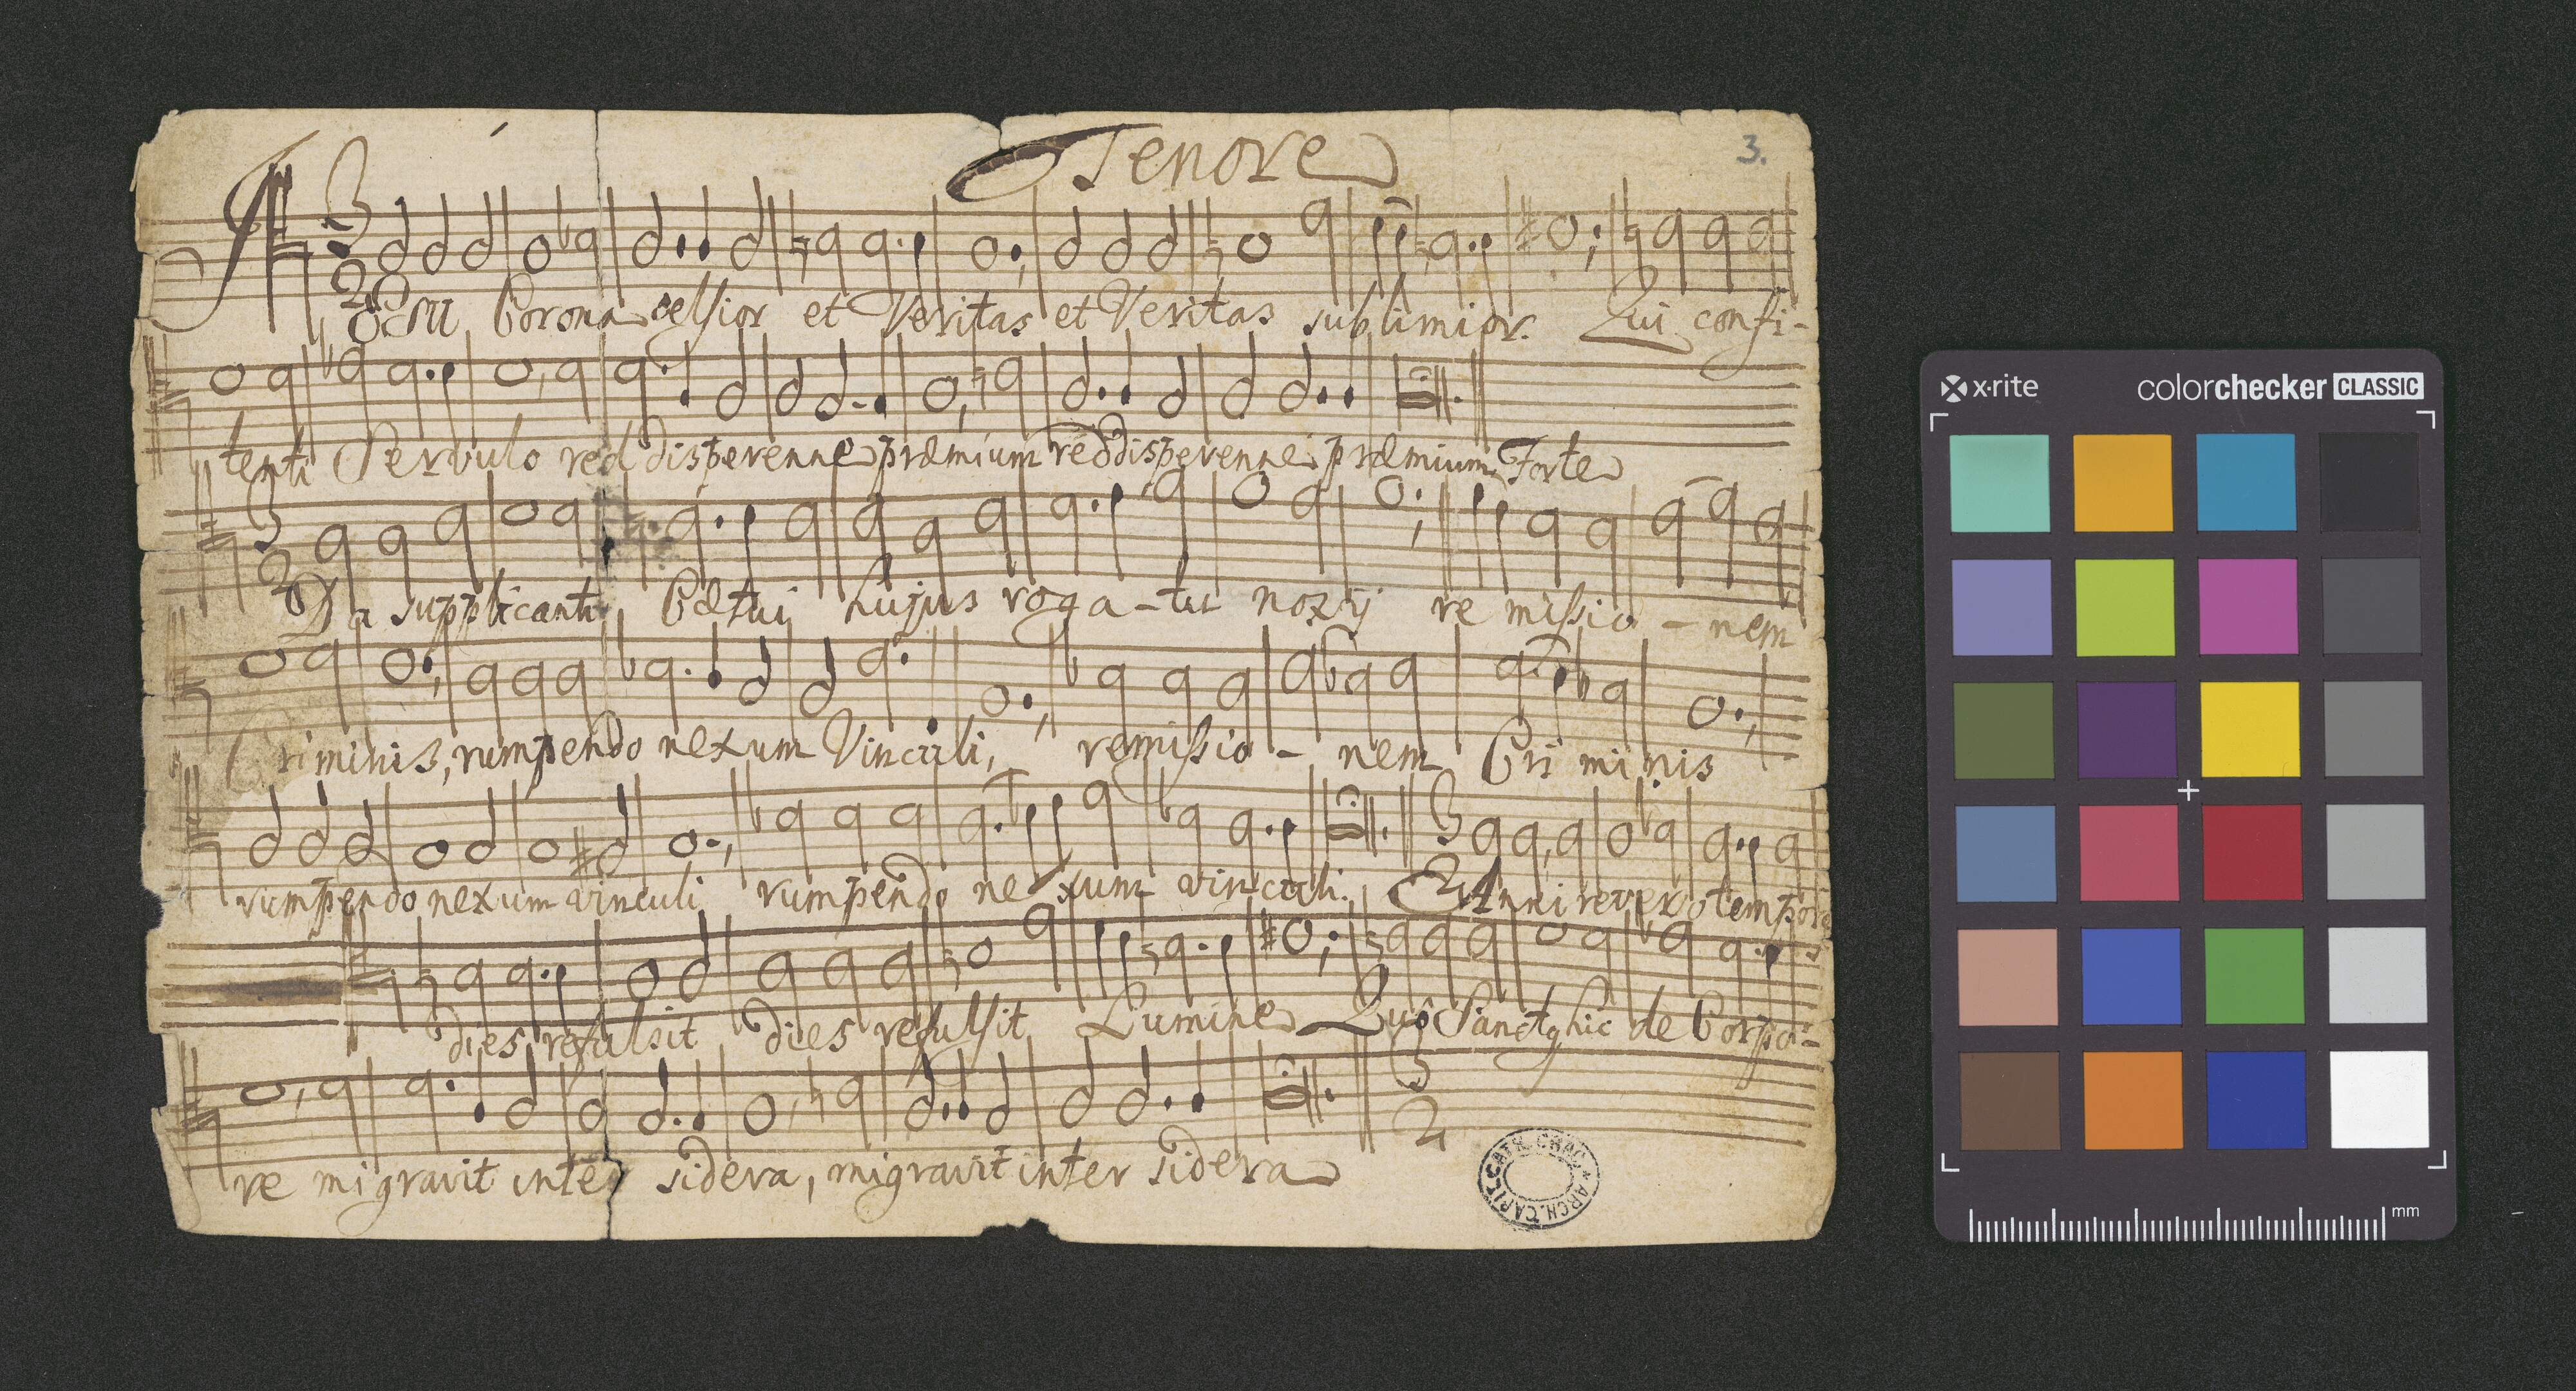 Tenore
3.
3
2
JEsu Corona celsior et Veritas et Veritas sublimior. Qui confi-
tenti Servulo reddis perenne præmium reddis perenne præmium Forte
3
2
Da supplicanti Cætui hujus roga-tu noxij remissio - nem
Criminis, rumpendo nexum Vinculi, remissio - nem Criminis
3
2
rumpendo nexum vinculi rumpendo nexum vinculi. Anni reverso tempore
dies refulsit dies refulsit Lumine Quô Sanct9 hic de Corpo-
3
2
re migravit inter sidera, migravit inter sidera
ARCH. CAPIT. CATH. CRAC
x-rite
colorchecker CLASSIC
mm